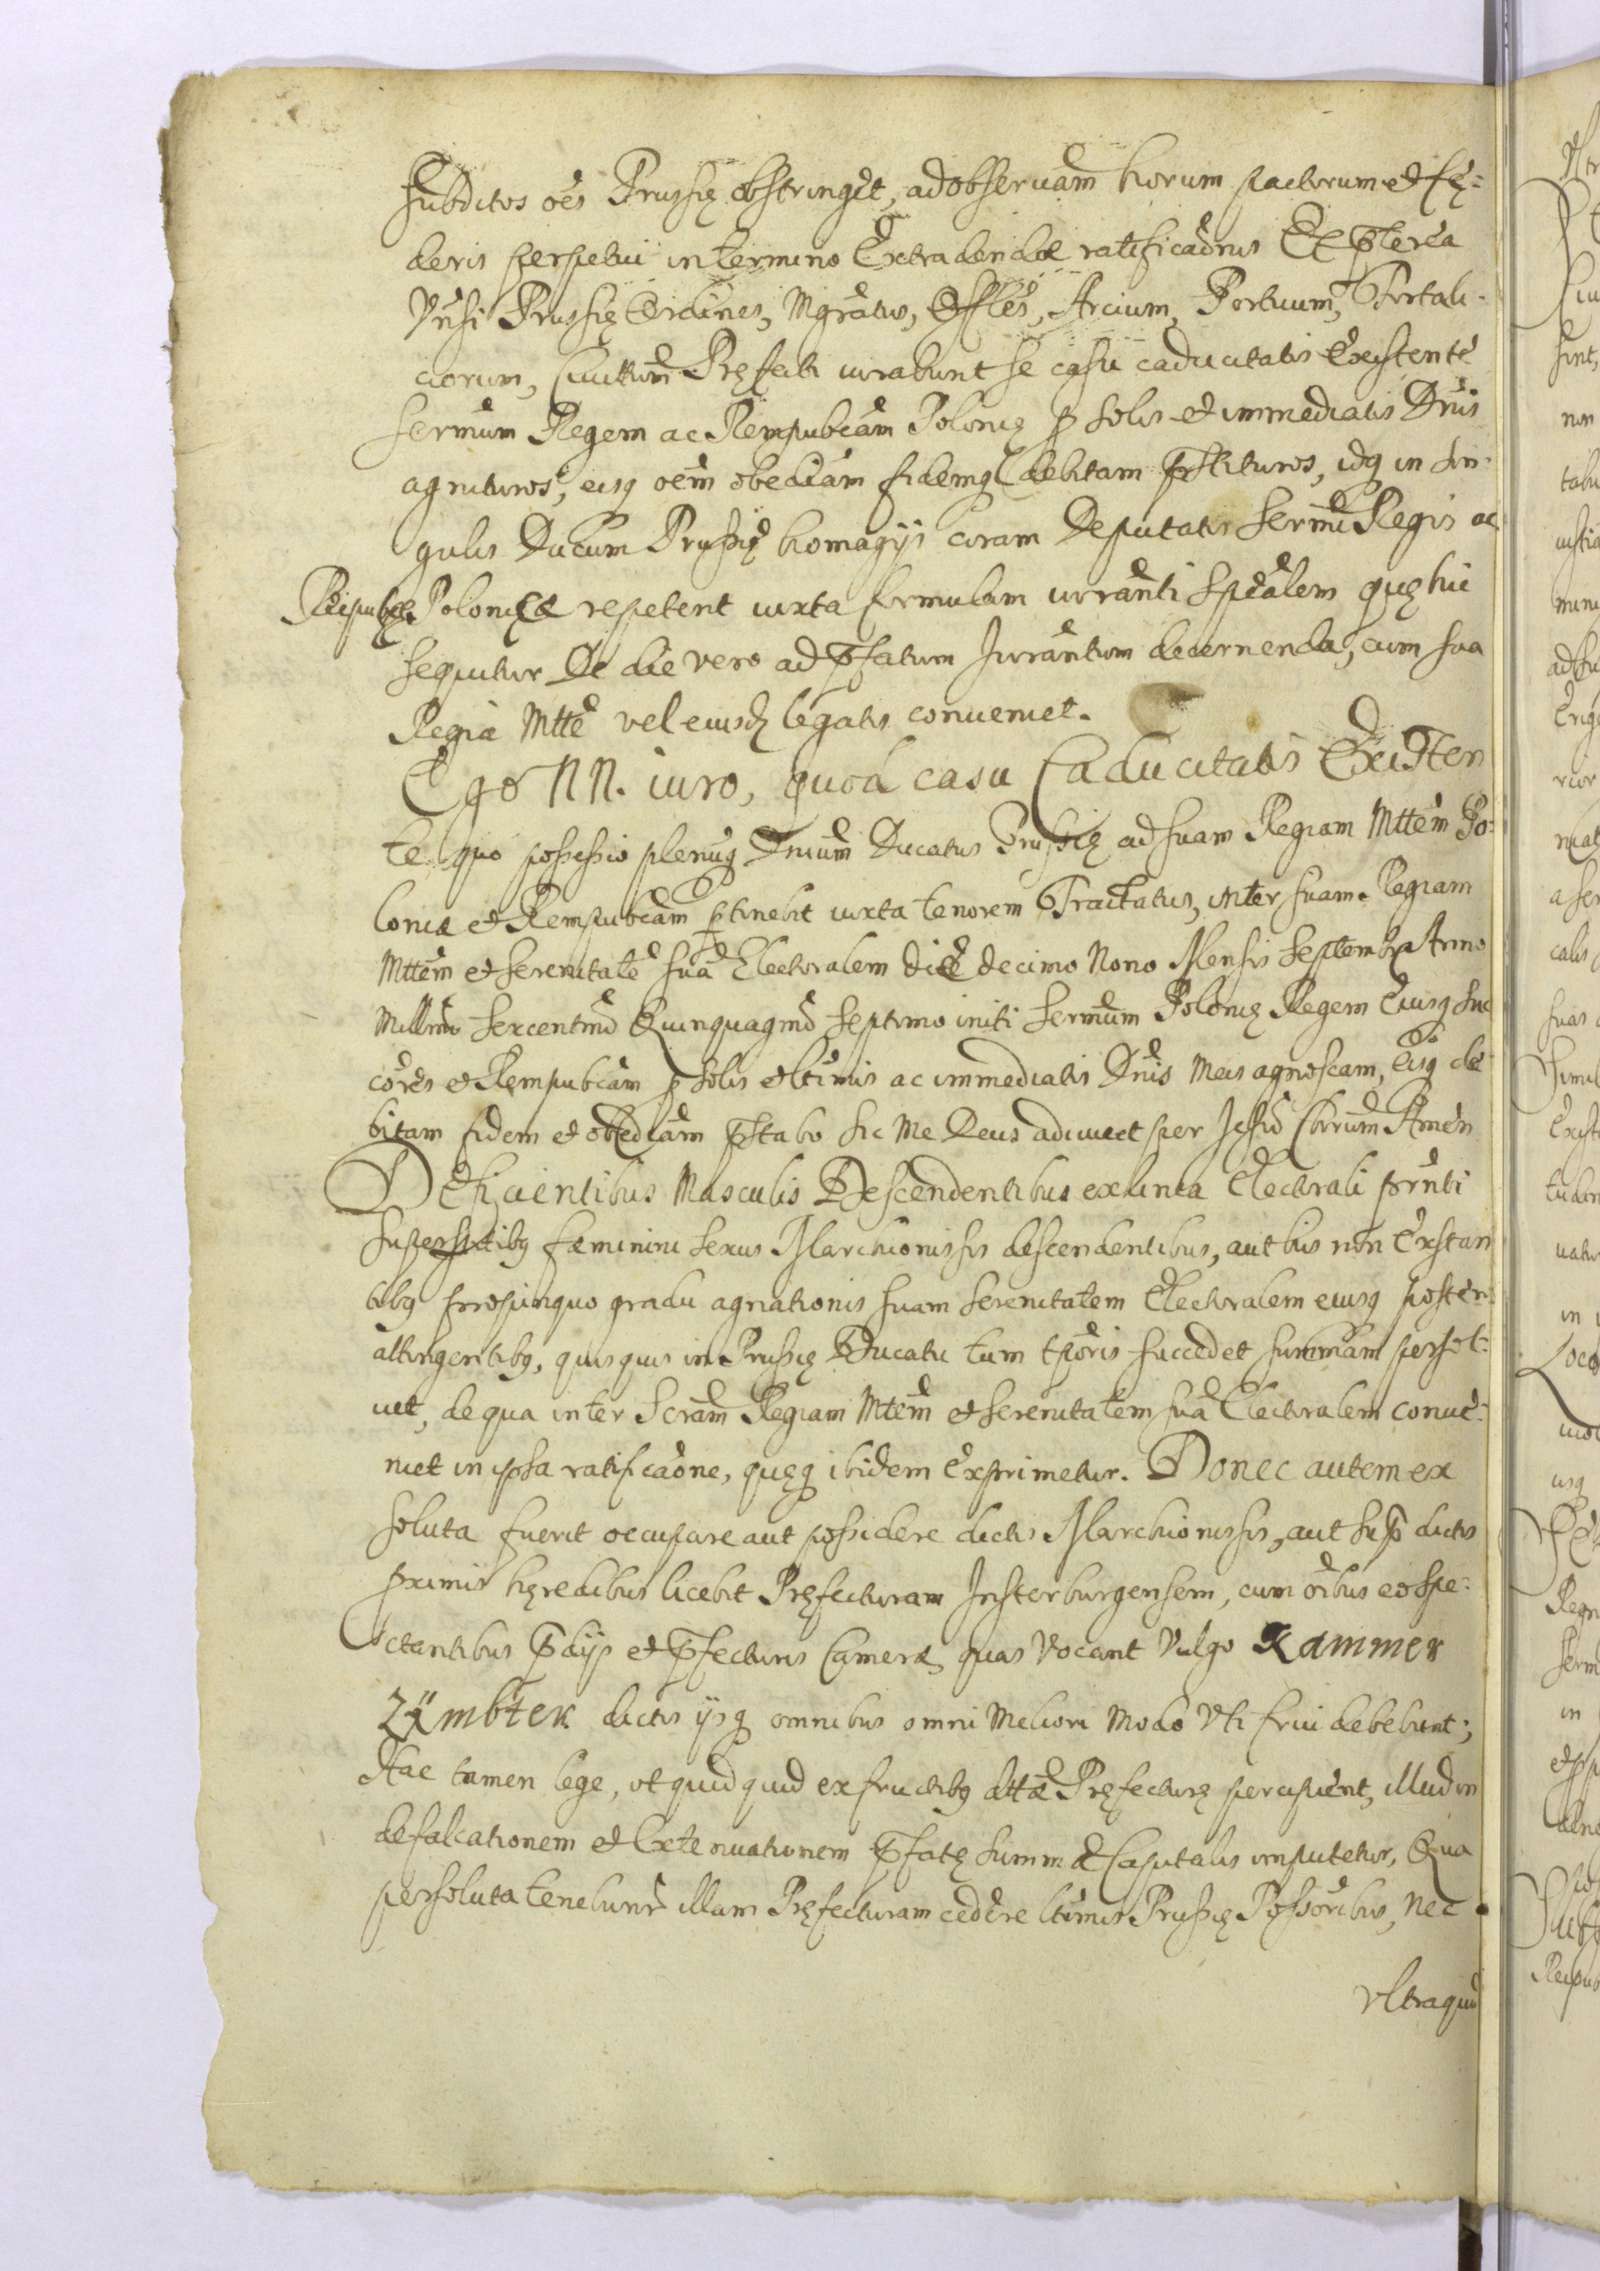 Subditos oēs Prussię obstringet, ad observam̄ horum pactorum et fę=
deris perpetui in termino Extradendae ratificaōnis Et p̄terea
Vn̄si Prussię Ordines, Mgrātus, Offles, Arcium, Portuum, Fortali-
ciorum, Civittum̄ Pręfecti iurabunt se casu caducitatis Existentē
Sermūm Regem ac Rempubcām Polonię p solis et immediatis Dn̄is
agnituros, eisq oēm obediām fidemq debitam p̄stituros, idq in sin-
gulis Ducum Prussię homagijs coram Deputatis Sermi Regis ac
Reipubcę Poloniæ repetent iuxta formulam iurānti Speālem quę hic
sequitur De die vero ad p̄fatum Jurāntum decernenda, cum sua
Regia Mtte vel eiusd legatis conveniet.
Ego NN. iuro, quod casu Caducitatis Existen
te quo possessio plenūq Dnium̄ Ducatus Prussię ad suam Regiam Mttem̄ Po-
loniæ et Rempubcām ptinebit iuxta tenorem Tractatus, inter suam Regiam
Mttem̄ et Serenitatē suā Electoralem die decimo Nono Mensis Septembr Anno
Millmo Sexcentmō Quinquagmō Septimo initi Sermūm Polonię Regem Eiusq suc
cōres et Rempubcām p solis et ltimis ac immediatis Dn̄is Meis agnoscam, Eisq de
bitam fidem et obediām p̄stabo sic Me Deus adiuvet per Jesū Chrum̄ Amen
Deficientibus Masculis Descendentibus ex linea Electorali prn̄ti
superstitibq fæminini Sexus Marchionissis descendentibus, aut his non Exstan
tibq propinquo gradu agnationis suam Serenitatem Electoralem eiusq poster.
attingentibq, quisquis in Prussię Ducatu tum tpōris succedet summam persol-
vet, de qua inter Scram̄ Regiam Mtem̄ et Serenitatem suā Electoralem conve-
niet in ipsa ratificaōne, quęq ibidem Exprimetur. Donec autem ex
soluta fuerit occupare aut possidere dictis Marchionissis, aut sup̄ dictis
pximis hęredibus licebit Pręfecturam Insterburgensem, cum oībus eo spe-
ctantibus p̄dijs et p̄fecturis Cameræ quas Vocant Vulgo Kammer
Ambter dictis ijsq omnibus omni Meliori Modo Vti frui debebunt;
Hac tamen lege, ut quidquid ex fructibq dttæ Pręfecturę percipient, illud in
defalcationem et Extenuationem p̄fatę summæ Capitalis imputetur, Qua
persoluta tenebuntr illam Pręfecturam cedere ltimis Prussię Possōribus, nec
vltraquid